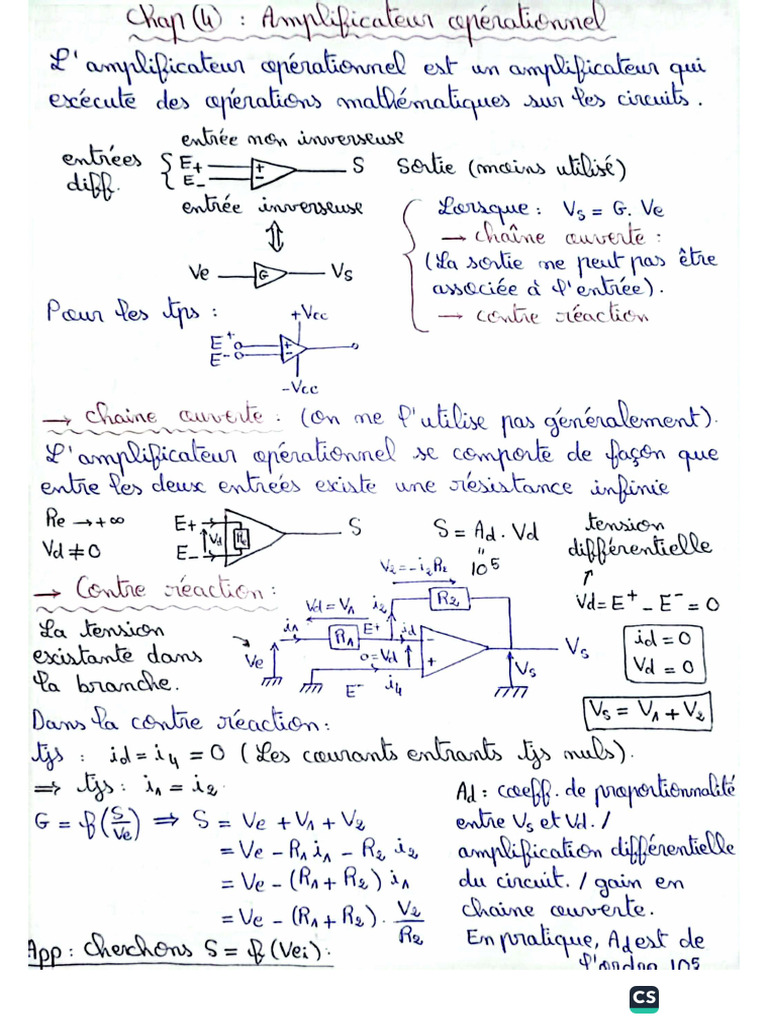 Chap (4) : Amplificateur opérationnel
L'amplificateur opérationnel est un amplificateur qui
exécute des opérations mathématiques sur les circuits.
entrée non inverseuse
entrées diff. { E+ E- + - S Sortie (moins utilisé)
entrée inverseuse
Lorsque : Vs = G. Ve
→ chaîne ouverte :
(La sortie ne peut pas être
associée à l'entrée).
→ contre réaction
Ve G Vs
Pour les tps :
+Vcc
E+
E-
+
-
-Vcc
→ chaine ouverte : (on ne l'utilise pas généralement).
L'amplificateur opérationnel se comporte de façon que
entre les deux entrées existe une résistance infinie
Re → +∞
Vd ≠ 0
E+
E-
Vd
Re
S
S = Ad . Vd
"
10⁵
tension
différentielle
↑
Vd = E⁺ - E⁻ = 0
→ Contre réaction :
La tension
existante dans
la branche.
V2 = -i2R2
R2
Vd = V1
i2
i1
R1
E+
id
-
+
0 = Vd
Ve
E-
i4
Vs
Vs
id = 0
Vd = 0
Vs = V1 + V2
Dans la contre réaction :
tjs : id = i4 = 0 (Les courants entrants tjs nuls).
⇒ tjs : i1 = i2.
G = f(S/Ve) ⇒ S = Ve + V1 + V2
= Ve - R1 i1 - R2 i2
= Ve - (R1 + R2) i1
= Ve - (R1 + R2) . V2/R2
Ad : coeff. de proportionnalité
entre Vs et Vd. /
amplification différentielle
du circuit. / gain en
chaine ouverte.
En pratique, Ad est de
l'ordre 10⁵
App : cherchons S = f(Vei) .
CS